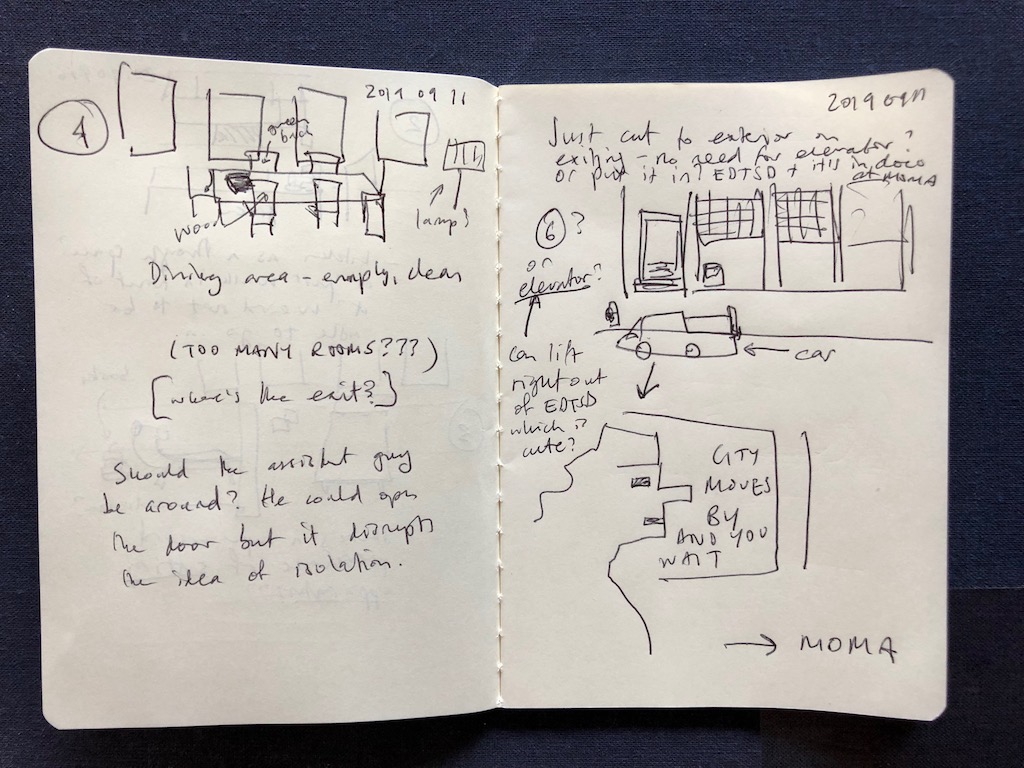 4
2019 09 11
green
birch
lamp?
wood
Dining area - empty, clean
(TOO MANY ROOMS???)
[where's the exit?]
Should the assistant guy
be around? He could open
the door but it disrupts
the idea of isolation.
2019 09 11
Just cut to exterior on
exiting - no need for elevator?
or put it in? EDTSD + it's in doco
at MOMA
6 ?
or
elevator?
?
can lift
right out
of EDTSD
which is
cute?
car
CITY
MOVES
BY
AND YOU
WAIT
→ MOMA